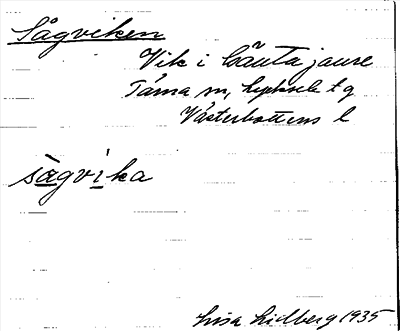 Sågviken
Vik i Gäutajaure
Tärna sn, Lycksele tg
Västerbottens l
sågvika
Lisa Lidberg 1935